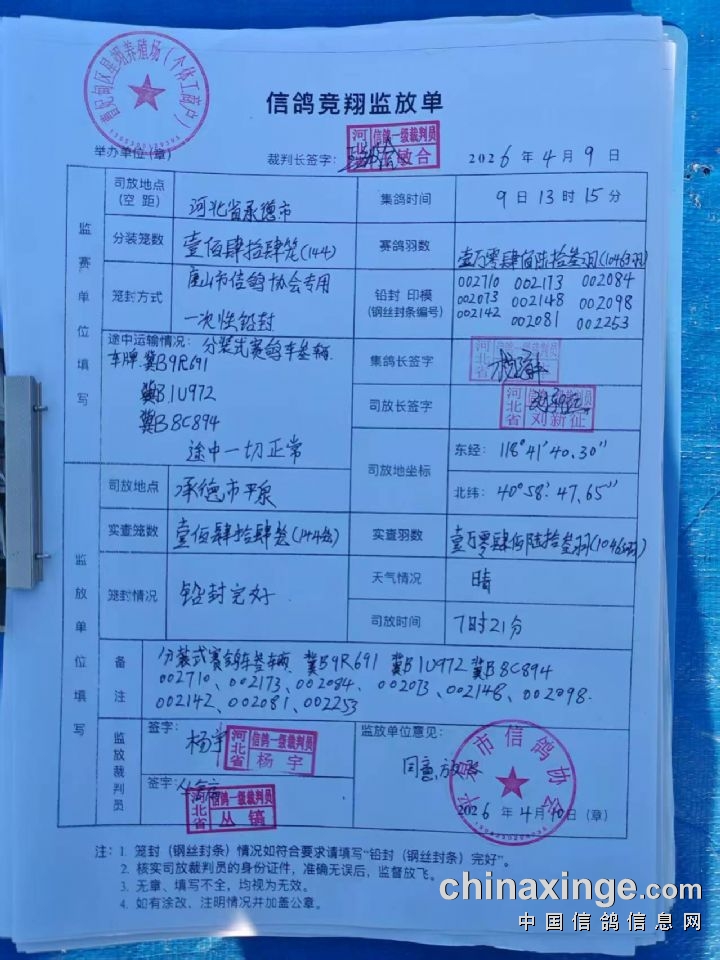 信鸽竞翔监放单
举办单位(章)
裁判长签字:
河北省 信鸽一级裁判员
2026年4月9日
监赛单位填写
司放地点(空距) 河北省承德市
集鸽时间 9日13时15分
分装笼数 壹佰肆拾肆笼(144)
赛鸽羽数 壹万零肆佰陆拾叁羽(10463羽)
笼封方式 唐山市信鸽协会专用
一次性铅封
铅封 印模(钢丝封条编号)
002710 002173 002084
002073 002148 002098
002142 002081 002253
途中运输情况: 分装式赛鸽车叁辆
车牌 冀B9R691
冀B1U972
冀B8C894
途中一切正常
集鸽长签字
司放长签字
河北省 信鸽一级裁判员 刘新征
司放地坐标
东经: 118°41′40.30″
北纬: 40°58′47.65″
监放单位填写
司放地点 承德市平泉
实查笼数 壹佰肆拾肆笼(144笼)
实查羽数 壹万零肆佰陆拾叁羽(10463羽)
笼封情况 铅封完好
天气情况 晴
司放时间 7时21分
备注 分装式赛鸽车叁辆 冀B9R691 冀B1U972 冀B8C894
002710、002173、002084、002073、002148、002098.
002142、002081、002253
监放裁判员
签字: 杨宇
河北省 信鸽一级裁判员 杨宇
签字:
河北省 信鸽一级裁判员 丛镐
监放单位意见:
同意放飞
市信鸽协会
2026年4月10日(章)
注: 1. 笼封(钢丝封条)情况如符合要求请填写“铅封(钢丝封条)完好”。
2. 核实司放裁判员的身份证件,准确无误后,监督放飞。
3. 无章、填写不全,均视为无效。
4. 如有涂改、注明情况并加盖公章。
chinaxinge.com
中国信鸽信息网